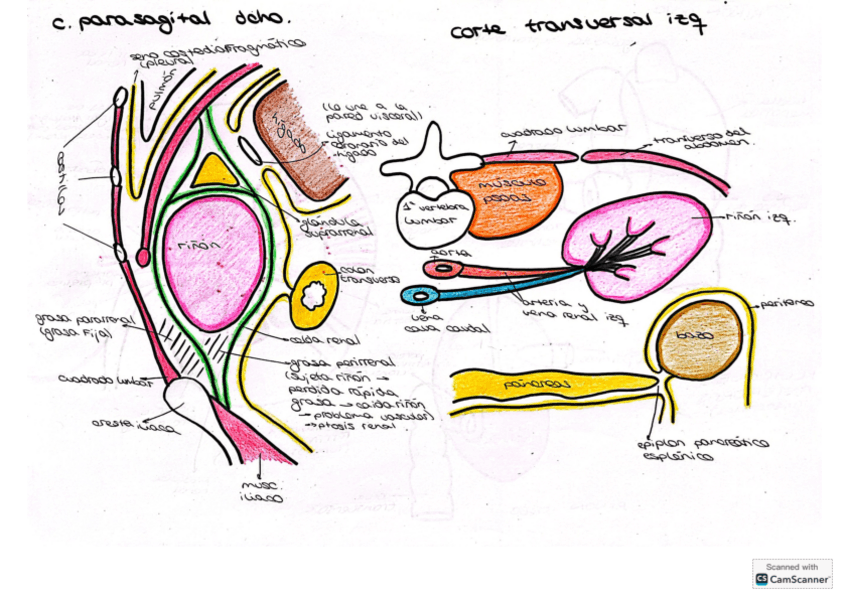 c. parasagital dcho.
seno costodiafragmático
(pleura)
pulmón
hígado
(lo une a la
pared visceral)
ligamento
coronario del
hígado
glándula
suprarrenal
riñón
colon
transverso
grasa pararrenal
(grasa fija)
celda renal
grasa perirrenal
(sujeta riñón →
perdida rápida
grasa → caida riñón
→ problema vascular)
→ ptosis renal
cuadrado lumbar
cresta iliaca
musc.
iliaco
corte transversal izq
cuadrado lumbar
transverso del
abdomen.
musculo
psoas
1ª vertebra
lumbar
riñón izq.
aorta
arteria y
vena renal izq
vena
cava caudal
peritoneo
bazo
páncreas
epiplon pancreático
esplénico
Scanned with
CS CamScanner